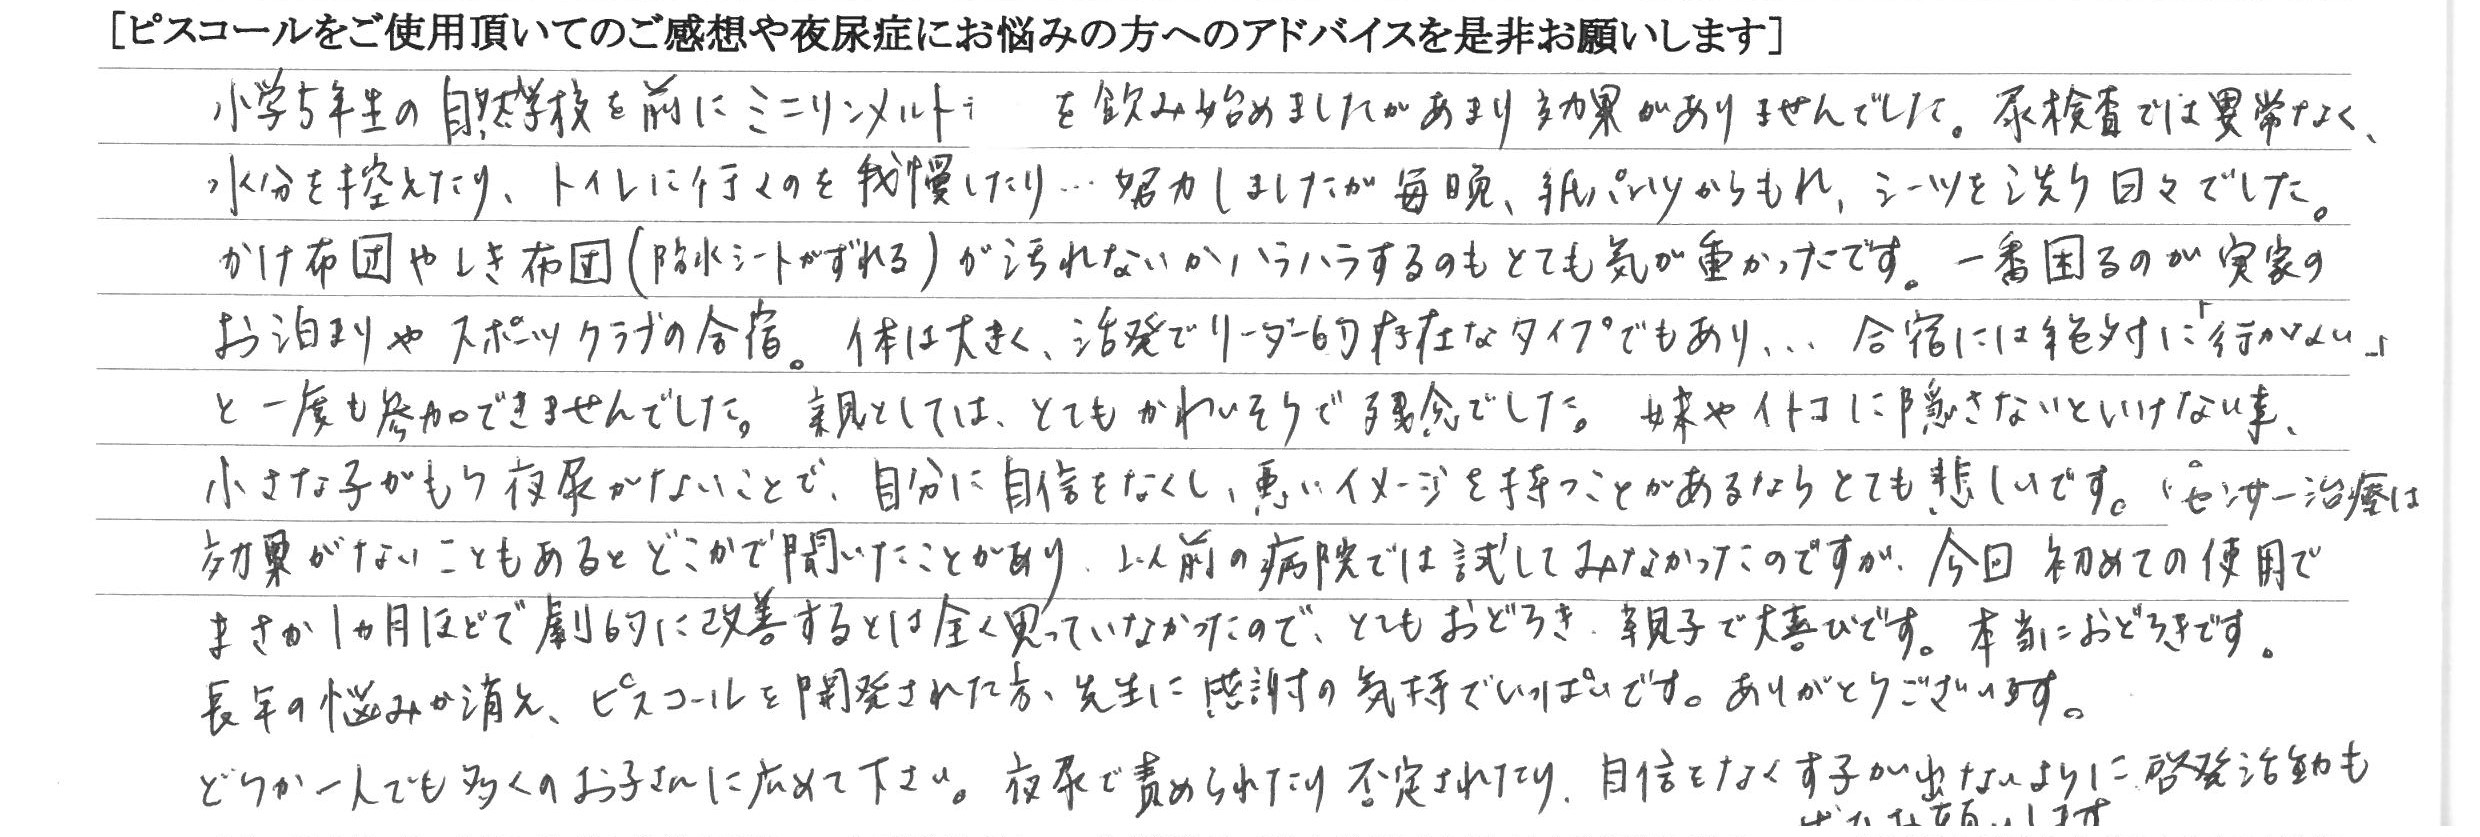 [ピスコールをご使用頂いてのご感想や夜尿症にお悩みの方へのアドバイスを是非お願いします]
小学5年生の自然学校を前にミニリンメルト を飲み始めましたがあまり効果がありませんでした。尿検査では異常なく、
水分を控えたり、トイレに行くのを我慢したり…努力しましたが毎晩、紙パンツからもれ、シーツを洗う日々でした。
かけ布団やしき布団(防水シートがずれる)が汚れないかハラハラするのもとても気が重かったです。一番困るのが実家の
お泊まりやスポーツクラブの合宿。体は大きく、活発でリーダー的存在なタイプでもあり、… 合宿には絶対に「行かない」
と一度も参加できませんでした。親としては、とてもかわいそうで残念でした。妹やイトコに隠さないといけない事、
小さな子がもう夜尿がないことで、自分に自信をなくし、悪いイメージを持つことがあるならとても悲しいです。センサー治療は
効果がないこともあるとどこかで聞いたことがあり、以前の病院では試してみなかったのですが、今回初めての使用で
まさか1ヵ月ほどで劇的に改善するとは全く思っていなかったので、とてもおどろき、親子で大喜びです。本当におどろきです。
長年の悩みが消え、ピスコールを開発された方、先生に感謝の気持でいっぱいです。ありがとうございます。
どうか一人でも多くのお子さんに広めて下さい。夜尿で責められたり否定されたり、自信をなくす子が出ないように啓発活動も
ぜひお願いします